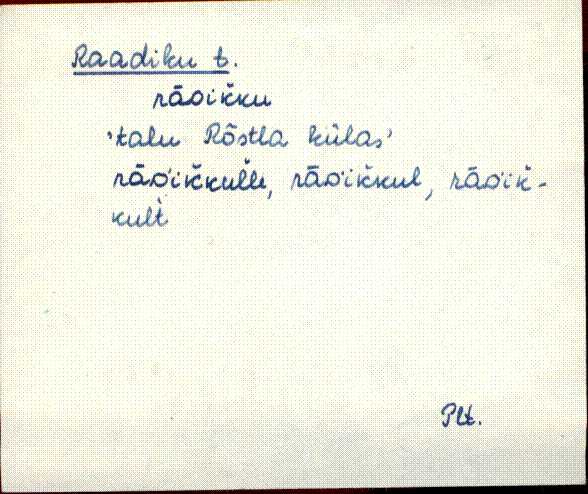 Raadiku t.
rāᴅikku
'talu Rõstla külas'
rāᴅ'ik̆kul̆le, rāᴅ'ik̆kul, rāᴅ'ik̆-
kult
Plt.